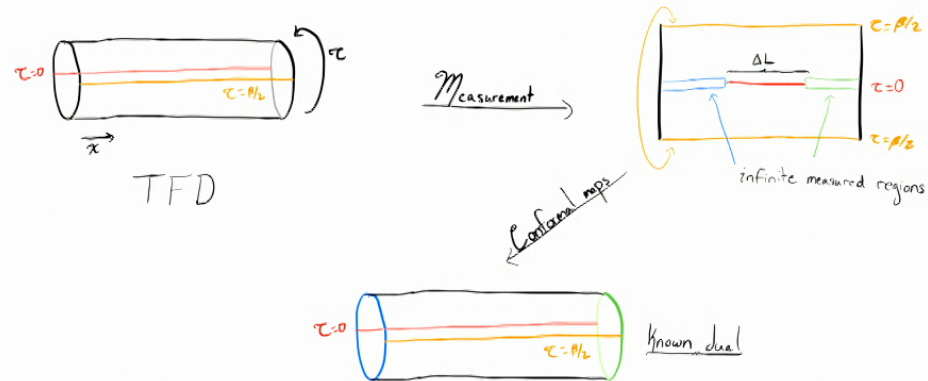 τ=0
τ=β/2
τ
x
TFD
Measurement
τ=β/2
ΔL
τ=0
τ=β/2
infinite measured regions
Conformal maps
τ=0
τ=β/2
Known dual